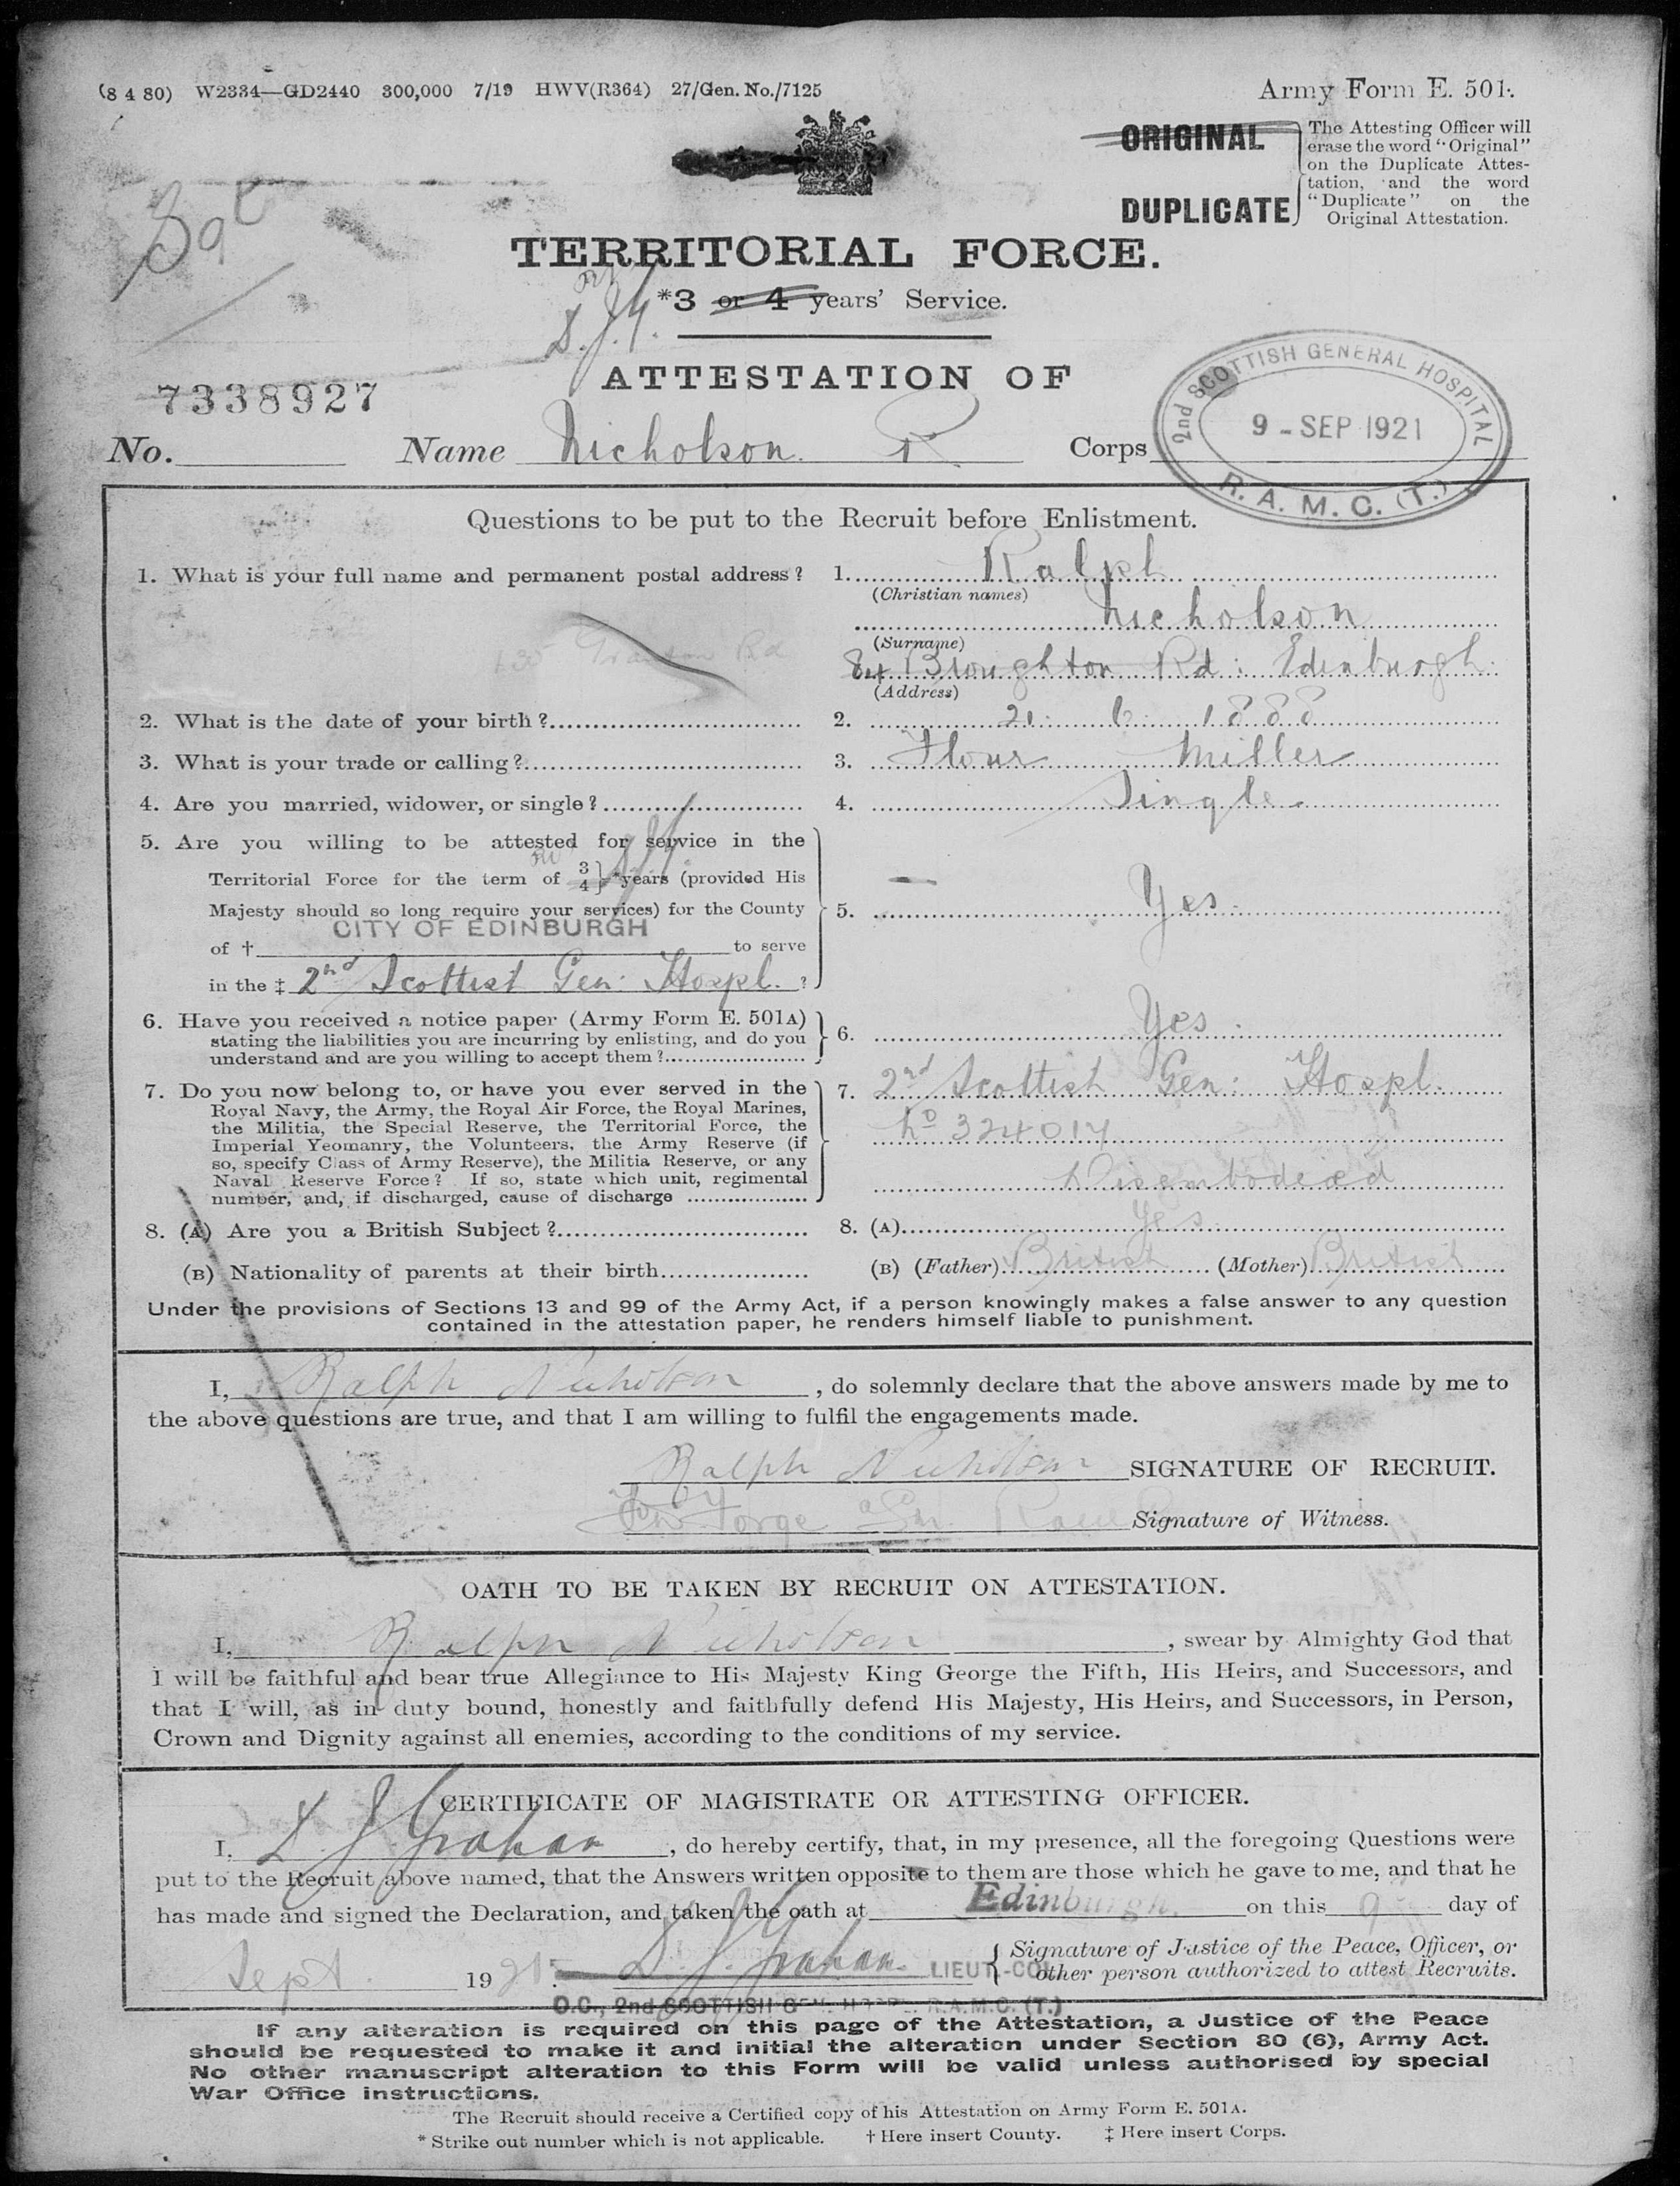 (8 4 80) W2334—GD2440 300,000 7/19 HWV(R364) 27/Gen. No./7125
Army Form E. 501.
ORIGINAL
DUPLICATE
The Attesting Officer will
erase the word "Original"
on the Duplicate Attes-
tation, and the word
"Duplicate" on the
Original Attestation.
TERRITORIAL FORCE.
*3 or 4 years' Service.
ATTESTATION OF
7338927
No. Name Nicholson R Corps
2nd SCOTTISH GENERAL HOSPITAL
9 - SEP 1921
R. A. M. C. (T.)
Questions to be put to the Recruit before Enlistment.
1. What is your full name and permanent postal address? 1. Ralph
(Christian names)
Nicholson
(Surname)
84 Broughton Rd: Edinburgh.
(Address)
Granton Rd
2. What is the date of your birth? 2. 21. 6. 1888
3. What is your trade or calling? 3. Flour Miller
4. Are you married, widower, or single? 4. Single.
5. Are you willing to be attested for service in the
Territorial Force for the term of 3/4 *years (provided His
Majesty should so long require your services) for the County
of † CITY OF EDINBURGH to serve
in the ‡ 2nd Scottish Gen: Hospl. ?
5. Yes.
6. Have you received a notice paper (Army Form E. 501A)
stating the liabilities you are incurring by enlisting, and do you
understand and are you willing to accept them?
6. Yes.
7. Do you now belong to, or have you ever served in the
Royal Navy, the Army, the Royal Air Force, the Royal Marines,
the Militia, the Special Reserve, the Territorial Force, the
Imperial Yeomanry, the Volunteers, the Army Reserve (if
so, specify Class of Army Reserve), the Militia Reserve, or any
Naval Reserve Force? If so, state which unit, regimental
number, and, if discharged, cause of discharge
7. 2nd Scottish Gen: Hospl.
No 324017
Disembodied
8. (A) Are you a British Subject? 8. (A) Yes
(B) Nationality of parents at their birth (B) (Father) British (Mother) British
Under the provisions of Sections 13 and 99 of the Army Act, if a person knowingly makes a false answer to any question
contained in the attestation paper, he renders himself liable to punishment.
I, Ralph Nicholson, do solemnly declare that the above answers made by me to
the above questions are true, and that I am willing to fulfil the engagements made.
Ralph Nicholson SIGNATURE OF RECRUIT.
Signature of Witness.
OATH TO BE TAKEN BY RECRUIT ON ATTESTATION.
I, Ralph Nicholson, swear by Almighty God that
I will be faithful and bear true Allegiance to His Majesty King George the Fifth, His Heirs, and Successors, and
that I will, as in duty bound, honestly and faithfully defend His Majesty, His Heirs, and Successors, in Person,
Crown and Dignity against all enemies, according to the conditions of my service.
CERTIFICATE OF MAGISTRATE OR ATTESTING OFFICER.
I, D J Graham, do hereby certify, that, in my presence, all the foregoing Questions were
put to the Recruit above named, that the Answers written opposite to them are those which he gave to me, and that he
has made and signed the Declaration, and taken the oath at Edinburgh, on this 9 day of
Sept. 1921. D. J. Graham. LIEUT.-COL
Signature of Justice of the Peace, Officer, or
other person authorized to attest Recruits.
O.C., 2nd SCOTTISH GEN. HOSPL. R.A.M.C. (T.)
If any alteration is required on this page of the Attestation, a Justice of the Peace
should be requested to make it and initial the alteration under Section 80 (6), Army Act.
No other manuscript alteration to this Form will be valid unless authorised by special
War Office instructions.
The Recruit should receive a Certified copy of his Attestation on Army Form E. 501A.
* Strike out number which is not applicable. † Here insert County. ‡ Here insert Corps.